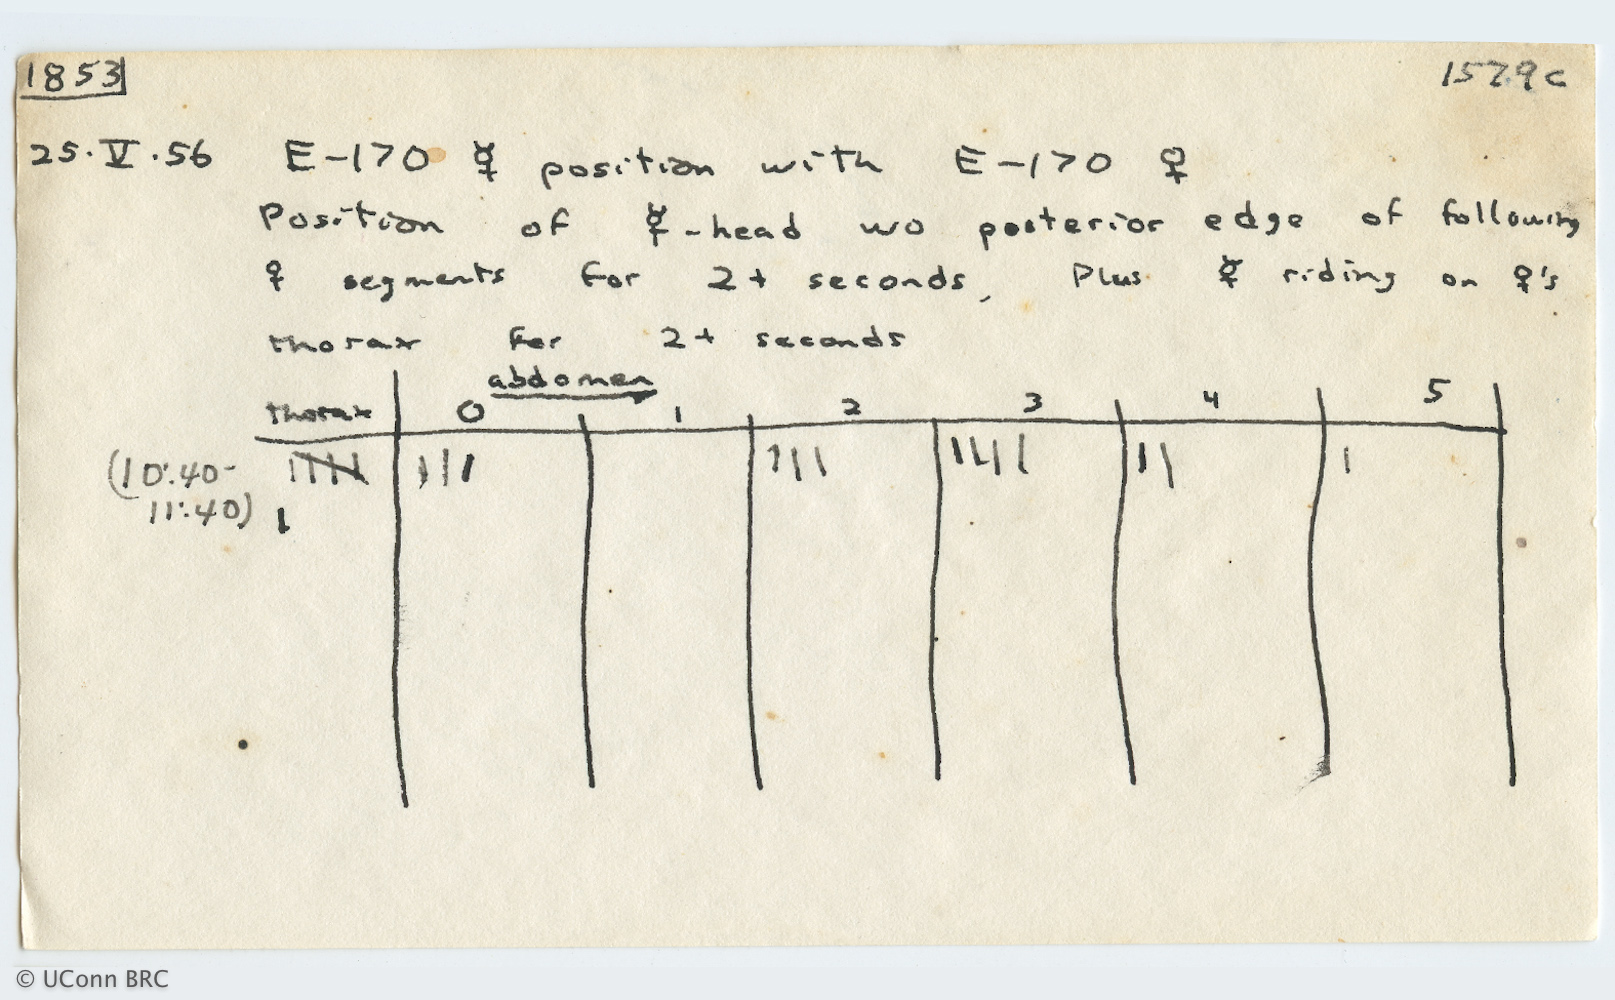 1853 1579c
25.V.56 E-170 ☿ position with E-170 ♀
Position of ☿-head wo posterior edge of following
♀ segments for 2+ seconds, Plus ☿ riding on ♀'s
thorax for 2+ seconds
abdomen
thorax 0 1 2 3 4 5
(10:40- |||| ||| ||| |||| || |
11:40) |
© UConn BRC